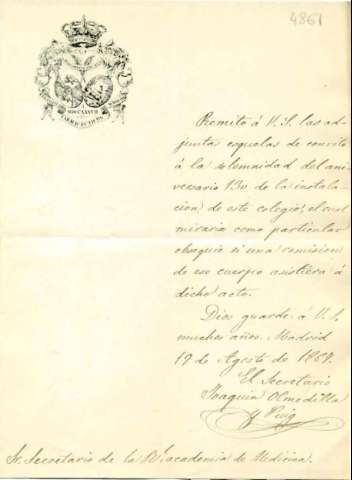 4861
MDCCXXXVII
FARMACEUTICOS
Remito á U. S. las ad-
junta esquelas de convite
á la solemnidad del ani-
versario 130 de la instala-
cion, de este colegio, el cual
miraria como particular
obsequio si una comision
de ese cuerpo asistiera á
dicho acto.
Dios guarde á U. S.
muchos años. Madrid
19 de Agosto de 1867.
El Secretario
Joaquin Olmedilla
y Puig
Sr. Secretario de la Rl. academia de Medicina.